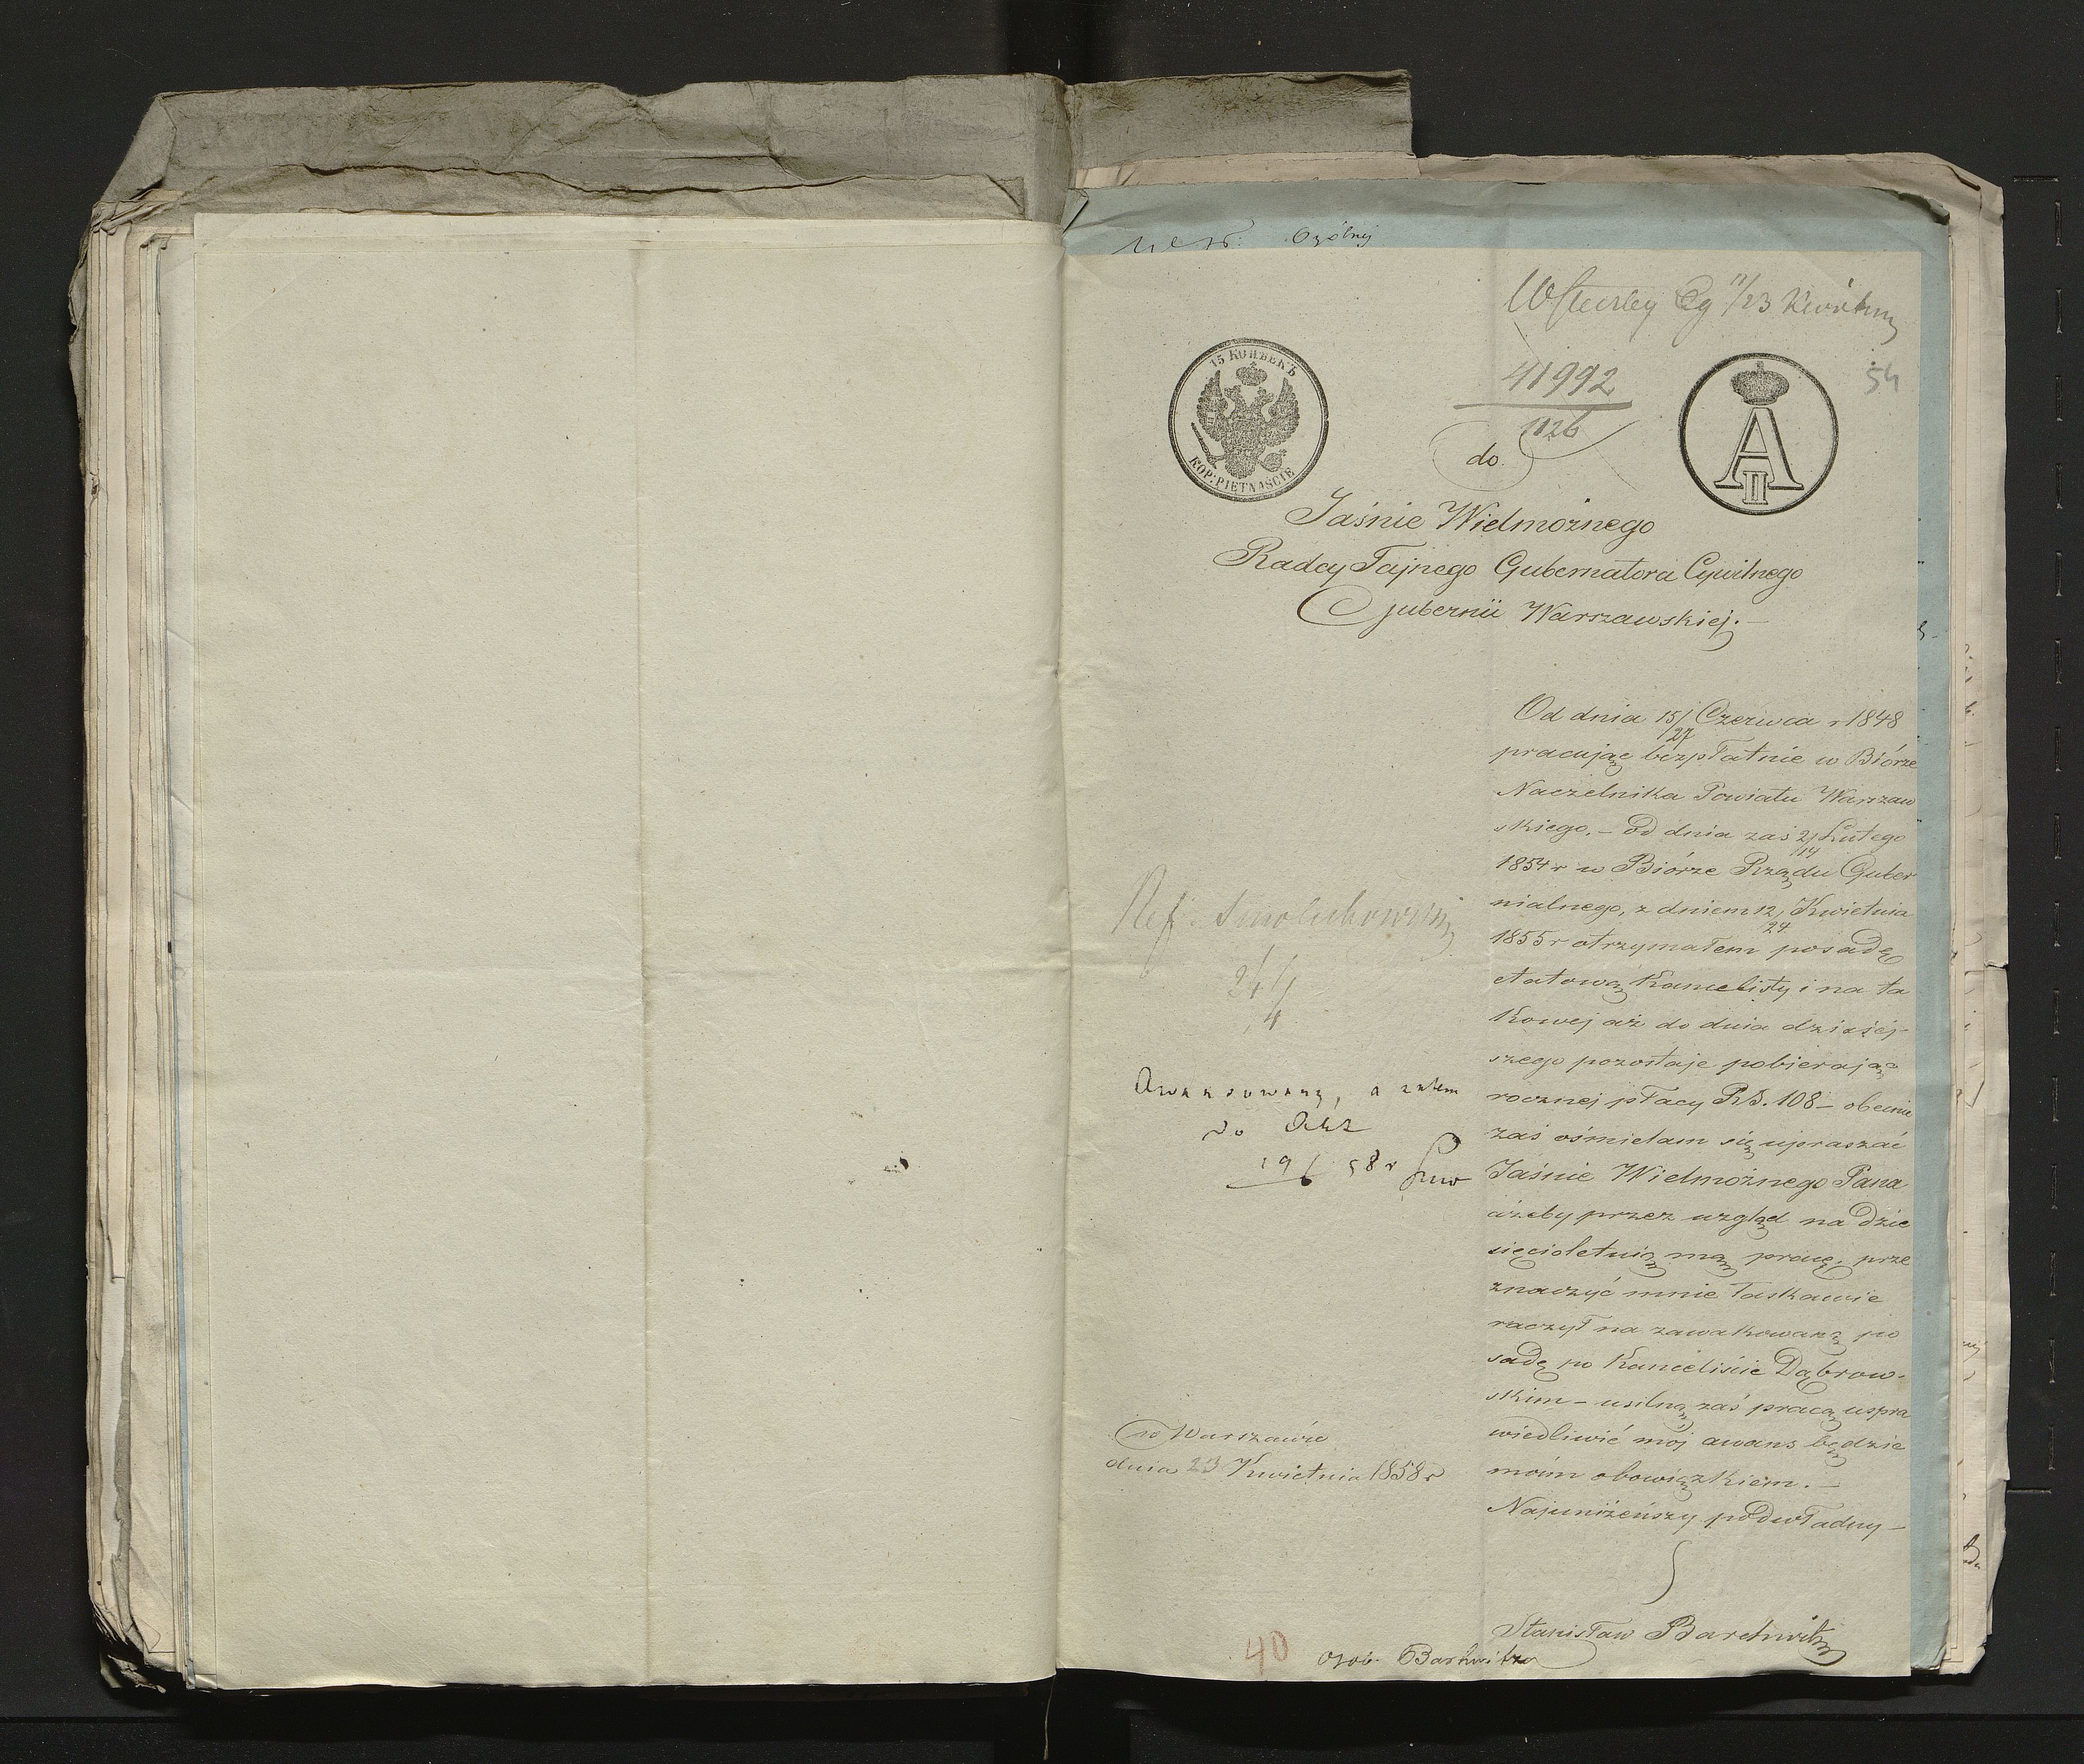 Ogólnej
11/23 Kwietnia
54
41992
1126
15 КОПѢЕКЪ
KOP: PIĘTNAŚCIE
A II
do
Jaśnie Wielmożnego
Radcy Tajnego Gubernatora Cywilnego
Gubernii Warszawskiej.—
Od dnia 15/27 Czerwca r 1848
pracując bezpłatnie w Biórze
Naczelnika Powiatu Warszaw
skiego. – Od dnia zaś 2/14 Lutego
1854 r w Biórze Rządu Guber
nialnego, z dniem 12/24 Kwietnia
1855 r otrzymałem posadę
etatową Kancelisty i na ta
kowej aż do dnia dzisiej-
szego pozostaje pobierając
rocznej płacy RS. 108 – obecnie
zaś ośmielam się upraszać
Jaśnie Wielmożnego Pana
ażeby przez wzgląd na dzie
sięcioletnią mą pracę, prze
znaczyć mnie łaskawie
raczył na zawakowaną po
sadę po Kanceliście Dąbrow-
skim – usilną zaś pracą uspra
wiedliwić mój awans będzie
moim obowiązkiem. —
Najuniżeńszy podwładny —
Stanisław Barchwitz
Ref.
24/4
Awansowany, a zatem
do Akt
19/6 58 r
w Warszawie
dnia 23 Kwietnia 1858 r
40
Osob. Barchwitza